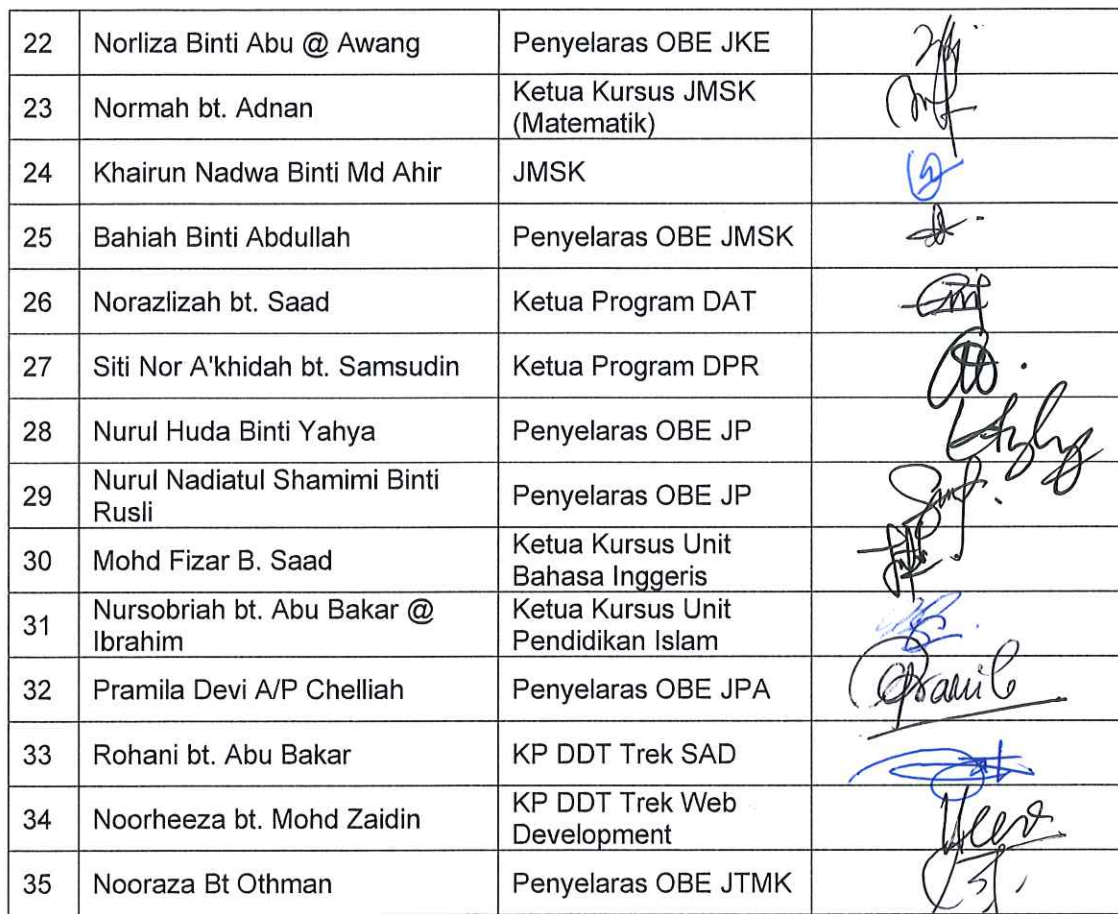 22 Norliza Binti Abu @ Awang Penyelaras OBE JKE
23 Normah bt. Adnan Ketua Kursus JMSK
(Matematik)
24 Khairun Nadwa Binti Md Ahir JMSK
25 Bahiah Binti Abdullah Penyelaras OBE JMSK
26 Norazlizah bt. Saad Ketua Program DAT
27 Siti Nor A'khidah bt. Samsudin Ketua Program DPR
28 Nurul Huda Binti Yahya Penyelaras OBE JP
29 Nurul Nadiatul Shamimi Binti
Rusli Penyelaras OBE JP
30 Mohd Fizar B. Saad Ketua Kursus Unit
Bahasa Inggeris
31 Nursobriah bt. Abu Bakar @
Ibrahim Ketua Kursus Unit
Pendidikan Islam
32 Pramila Devi A/P Chelliah Penyelaras OBE JPA
33 Rohani bt. Abu Bakar KP DDT Trek SAD
34 Noorheeza bt. Mohd Zaidin KP DDT Trek Web
Development
35 Nooraza Bt Othman Penyelaras OBE JTMK